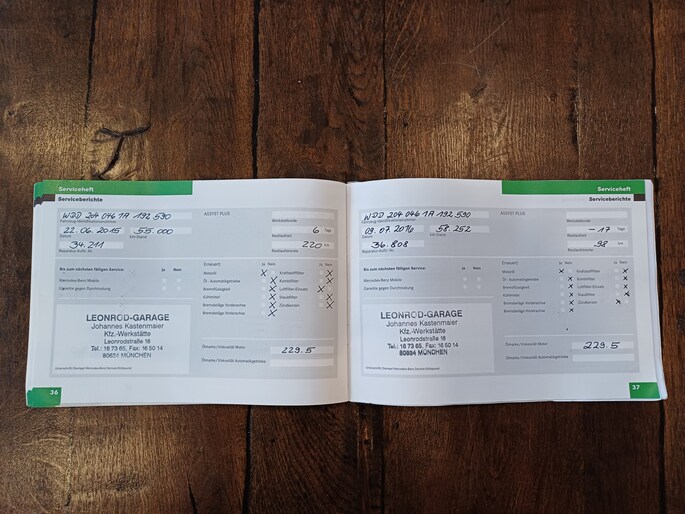 Serviceheft
Serviceberichte
WDD 204 046 1A 192 590
ASSYST PLUS
Fahrzeug-Identifizierungsnummer
Werkstattcode
22.06.2015 55.000
6 Tage
Datum
Km-Stand
Restlaufzeit
34.211
220 km
Reparatur-Auftr.-Nr.
Restlaufstrecke
Bis zum nächsten fälligen Service:
Ja Nein
Erneuert:
Ja Nein
Ja Nein
Mercedes-Benz Mobilo
Garantie gegen Durchrostung
Motoröl
Öl - Automatikgetriebe
Bremsflüssigkeit
Kühlmittel
Bremsbeläge Vorderachse
Bremsbeläge Hinterachse
Kraftstofffilter
Kombifilter
Luftfilter-Einsatz
Staubfilter
Zündkerzen
LEONROD-GARAGE
Johannes Kastenmaier
Kfz.-Werkstätte
Leonrodstraße 16
Tel.: 16 73 65, Fax: 16 50 14
80634 MÜNCHEN
Ölmarke/Viskosität Motor:
229.5
Ölmarke/Viskosität Automatikgetriebe:
36
Serviceheft
Serviceberichte
WDD 204 046 1A 192 590
ASSYST PLUS
Fahrzeug-Identifizierungsnummer
Werkstattcode
09.07.2016 58.252
-17 Tage
Datum
Km-Stand
Restlaufzeit
36.808
-98 km
Reparatur-Auftr.-Nr.
Restlaufstrecke
Bis zum nächsten fälligen Service:
Ja Nein
Erneuert:
Ja Nein
Ja Nein
Mercedes-Benz Mobilo
Garantie gegen Durchrostung
Motoröl
Öl - Automatikgetriebe
Bremsflüssigkeit
Kühlmittel
Bremsbeläge Vorderachse
Bremsbeläge Hinterachse
Kraftstofffilter
Kombifilter
Luftfilter-Einsatz
Staubfilter
Zündkerzen
LEONROD-GARAGE
Johannes Kastenmaier
Kfz.-Werkstätte
Leonrodstraße 16
Tel.: 16 73 65, Fax: 16 50 14
80634 MÜNCHEN
Ölmarke/Viskosität Motor:
229.5
Ölmarke/Viskosität Automatikgetriebe:
37